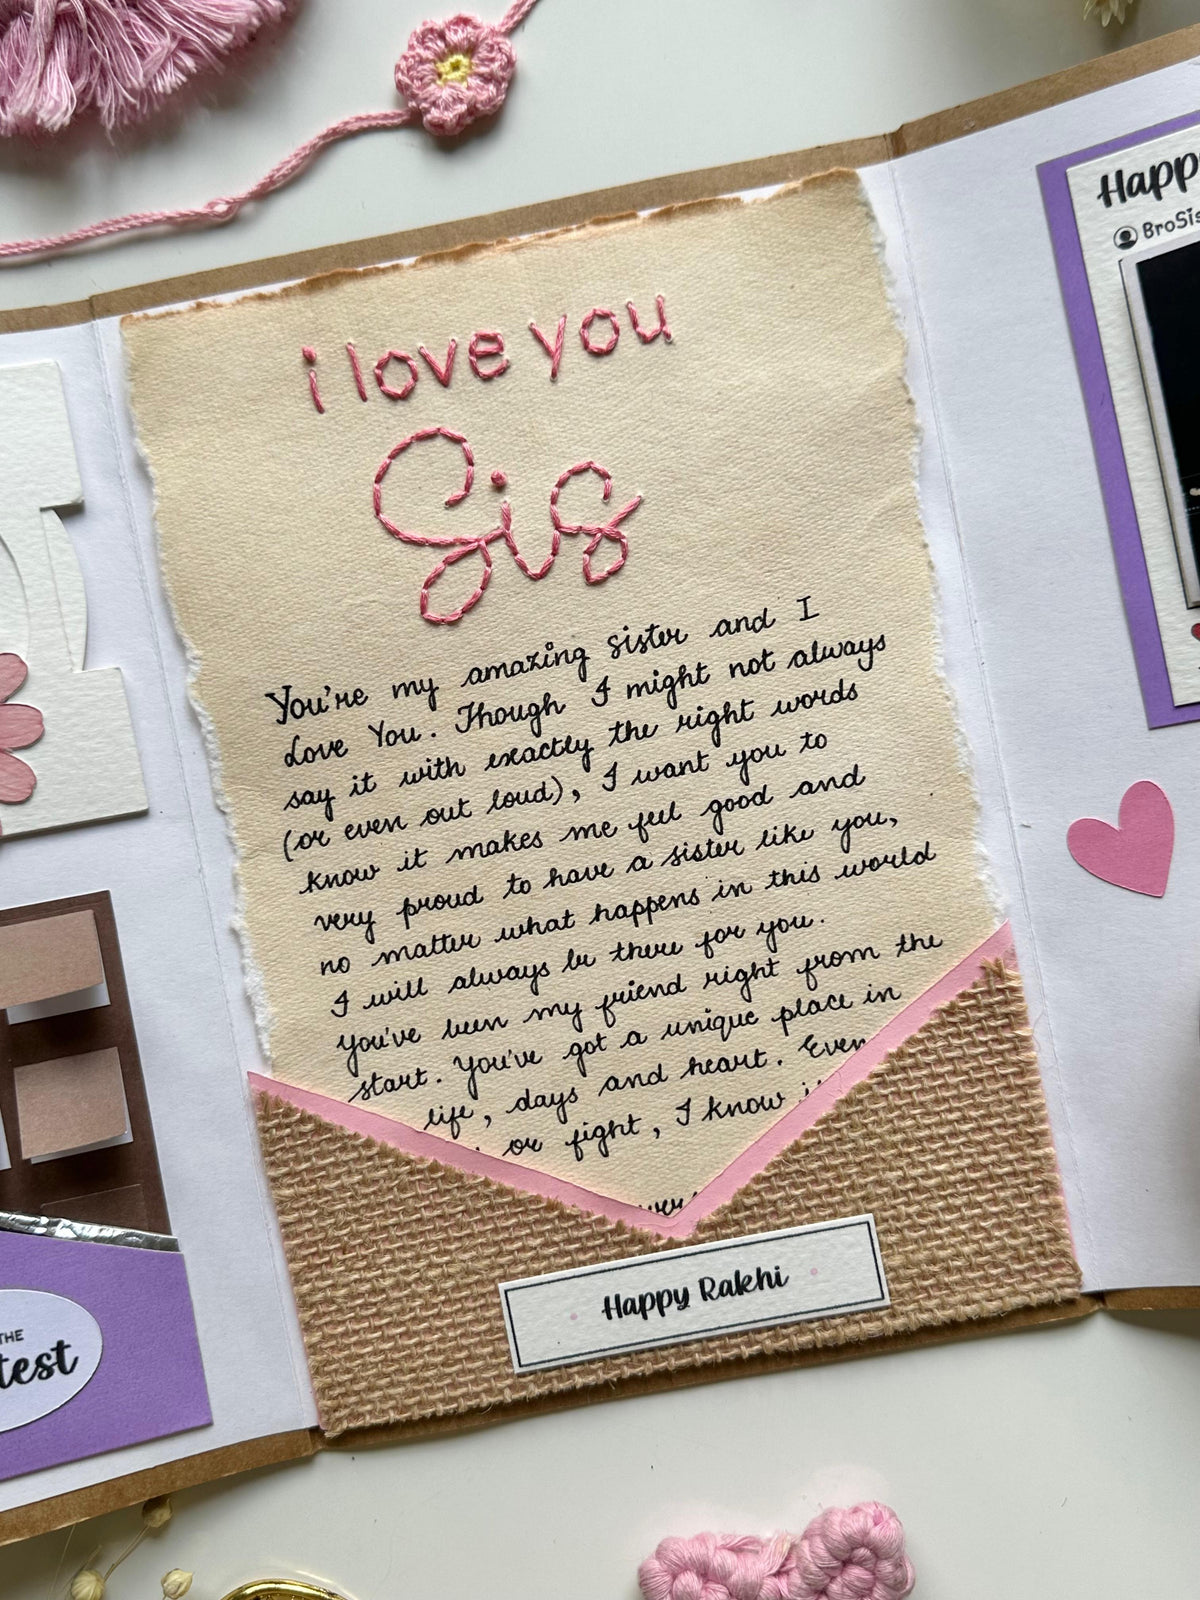 i love you
Sis
You're my amazing sister and I
Love You. Though I might not always
say it with exactly the right words
(or even out loud), I want you to
know it makes me feel good and
very proud to have a sister like you,
no matter what happens in this world
I will always be there for you.
You've been my friend right from the
start. You've got a unique place in
life, days and heart. Even
or fight, I know
Happy Rakhi
Happ
BroSis
THE
test